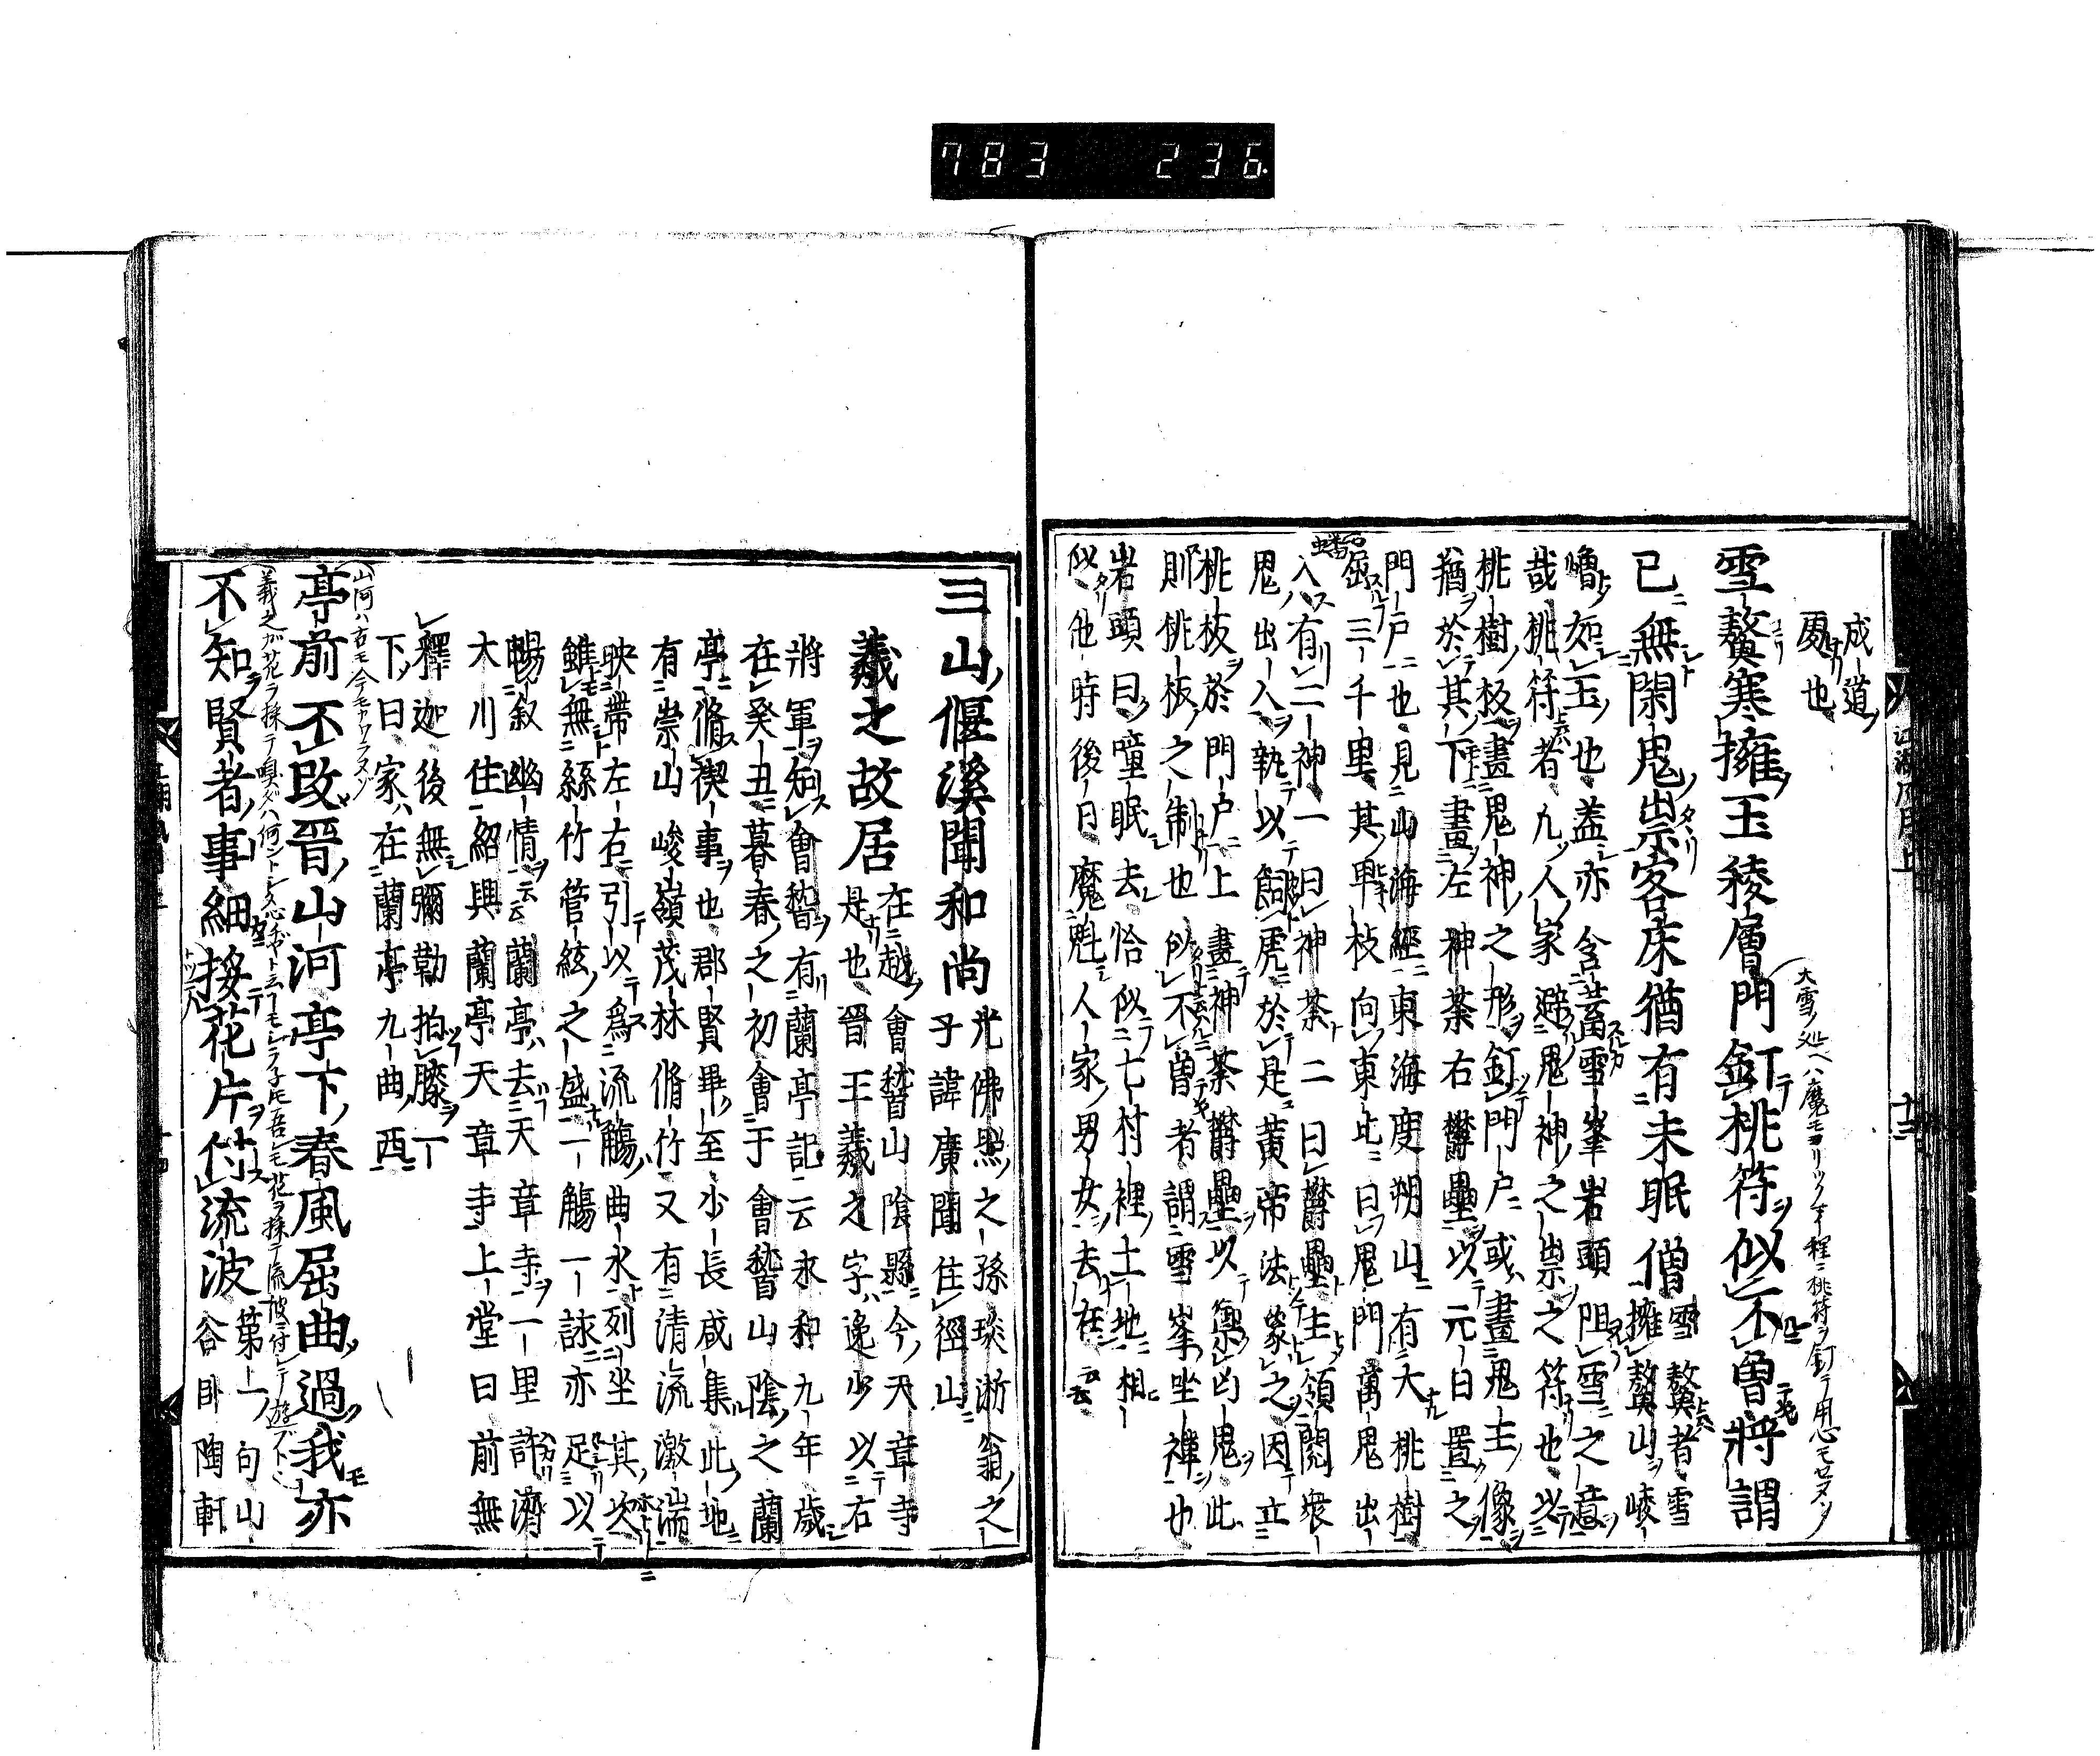 783 236
成道
處也
雪鰲寒擁玉稜層門釘桃符似不曾將謂
已無閑鬼祟客床猶有未眠僧 雪鰲者雪
擁鰲山崚
嶒如玉也蓋亦含蓄雪峯岩頭阻雪之意
哉桃符者凡人家避鬼神之祟之符也以
桃樹板畫鬼神之形釘門戶或畫鬼王像
插於其下畫左神荼右欝壘以元日置之
門戶也見山海經東海度朔山有大桃樹
屈三千里其卑枝向東北曰鬼門萬鬼出
入有二神一曰神荼二曰欝壘主領閱衆
鬼出入執以飼虎於是黃帝法象之因立
桃板於門戶上畫神荼欝壘以禦凶鬼此
則桃板之制也似不曾者謂雪峯坐禪也
岩頭曰噇眠去恰似七村裡土地相
似他時後日魔魅人家男女去在云云
三山偃溪聞和尚 光佛照之孫琰浙翁之
子諱廣聞住徑山
羲之故居 在越會稽山陰縣今天章寺
是也晉王羲之字逸少以右
將軍知會稽有蘭亭記云永和九年歲
在癸丑暮春之初會于會稽山陰之蘭
亭脩禊事也郡賢畢至少長咸集此地
有崇山峻嶺茂林脩竹又有清流激湍
映帶左右引以為流觴曲水列坐其次
雖無絲竹管絃之盛一觴一詠亦足以
暢叙幽情云云蘭亭去天章寺一里許濟
大川住紹興蘭亭天章寺上堂曰前無
釋迦後無彌勒拍膝一
下曰家在蘭亭九曲西
亭前不改晉山河亭下春風屈曲過我亦
不知賢者事細挼花片付流波 第一句山
谷臥陶軒